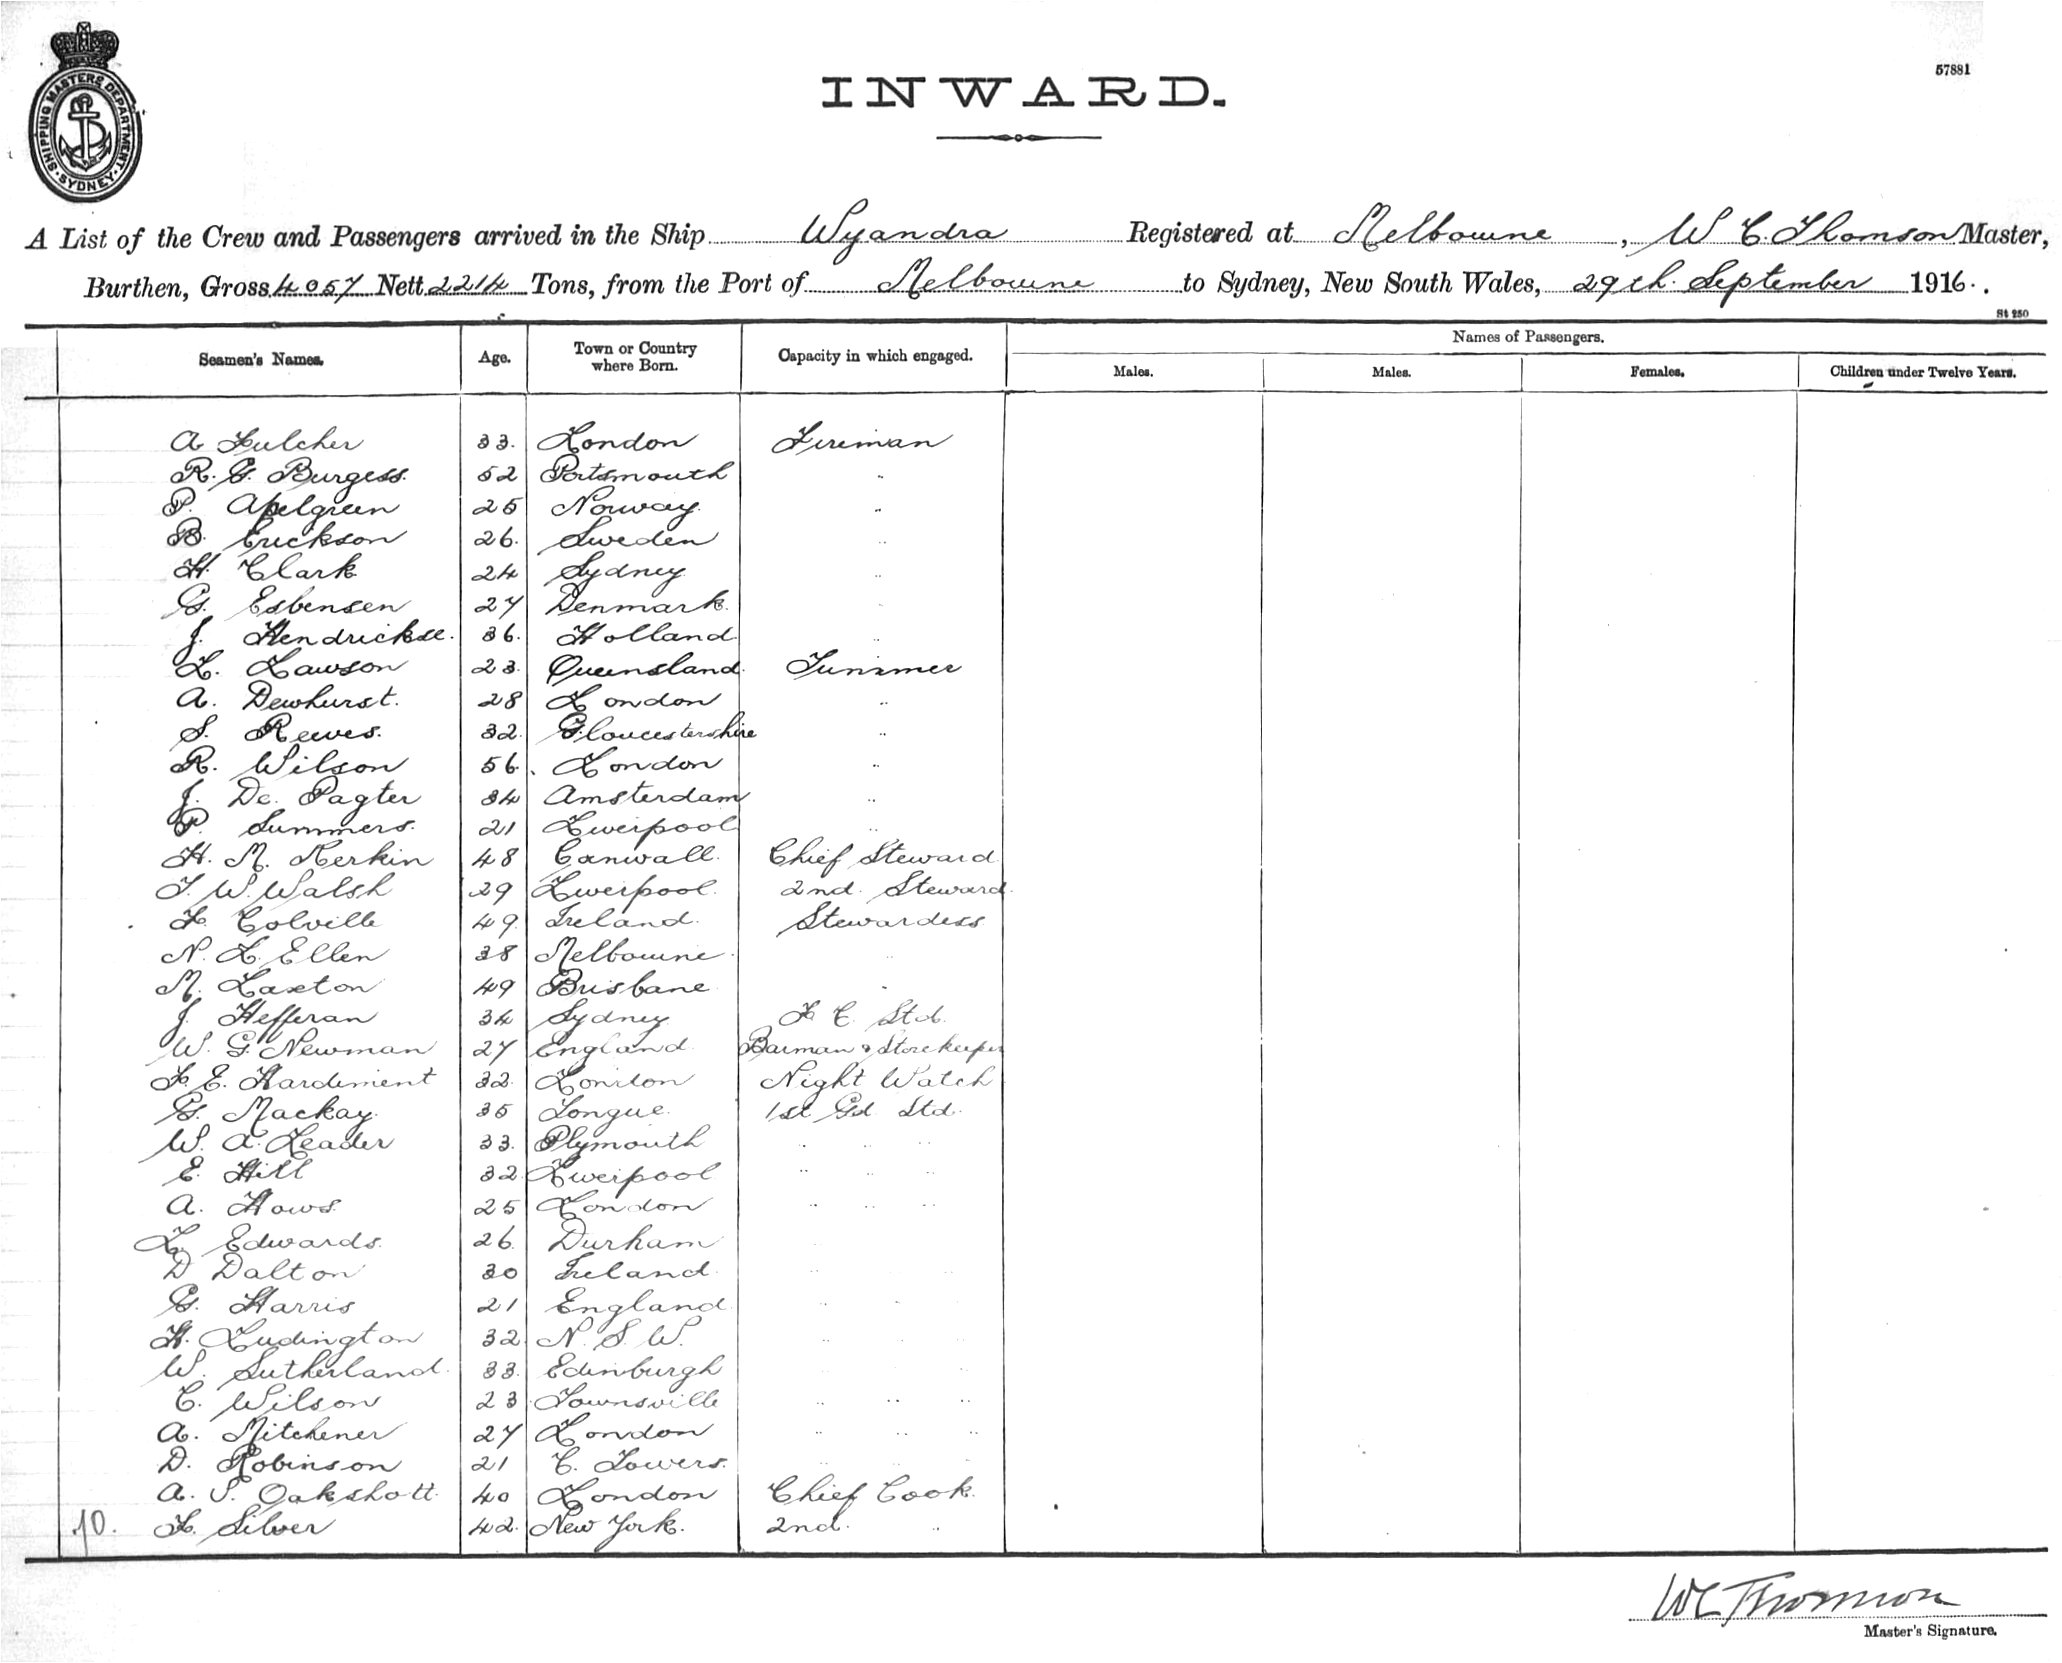 SHIPPING MASTERS DEPARTMENT
SYDNEY
57881
INWARD.
A List of the Crew and Passengers arrived in the Ship Wyandra Registered at Melbourne, W C. Thomson Master,
Burthen, Gross 4057 Nett 2214 Tons, from the Port of Melbourne to Sydney, New South Wales, 29th. September 1916.
St 250
Seamen's Names. Age. Town or Country where Born. Capacity in which engaged. Names of Passengers.
Males. Males. Females. Children under Twelve Years.
A Fulcher 33. London Fireman
R. G. Burgess. 52 Portsmouth "
P. Apelgreen 25 Norway. "
B. Erickson 26. Sweden "
H. Clark 24 Sydney "
G. Esbensen 27 Denmark. "
J. Hendrickse. 36. Holland "
L. Lawson 23. Queensland Trimmer
A. Dewhurst. 28 London "
S. Reeves. 32. Gloucestershire "
R. Wilson 56. London "
J. De. Pagter 34 Amsterdam "
P. Summers. 21 Liverpool "
H. M. Kerkin 48 Canwall. Chief Steward
T. W. Walsh 29 Liverpool. 2nd. Steward.
F. Colville 49. Ireland. Stewardess
N. L. Ellen 38 Melbourne. "
M. Laxton 49 Brisbane "
J. Hefferan 34 Sydney F C. Std.
W. G. Newman 27 England. Barman & Storekeeper
F. E. Hardiment 32. London Night Watch
G. Mackay. 35 Tongue. 1st Gd Std.
W. A. Leader 33. Plymouth " " "
E. Hill 32. Liverpool " " "
A. Hows. 25 London " " "
L. Edwards. 26. Durham " "
D Dalton 30 Ireland. " "
G. Harris 21 England " " "
H. Ludington 32 N. S. W. " " "
W. Sutherland. 33. Edinburgh " " "
C. Wilson 23 Townsville " " "
A. Mitchener 27 London " " "
D. Robinson 21 C. Towers. " " "
A. S. Oakshott. 40 London Chief Cook.
70. F. Silver 42. New York. 2nd. "
WC Thomson
Master's Signature.